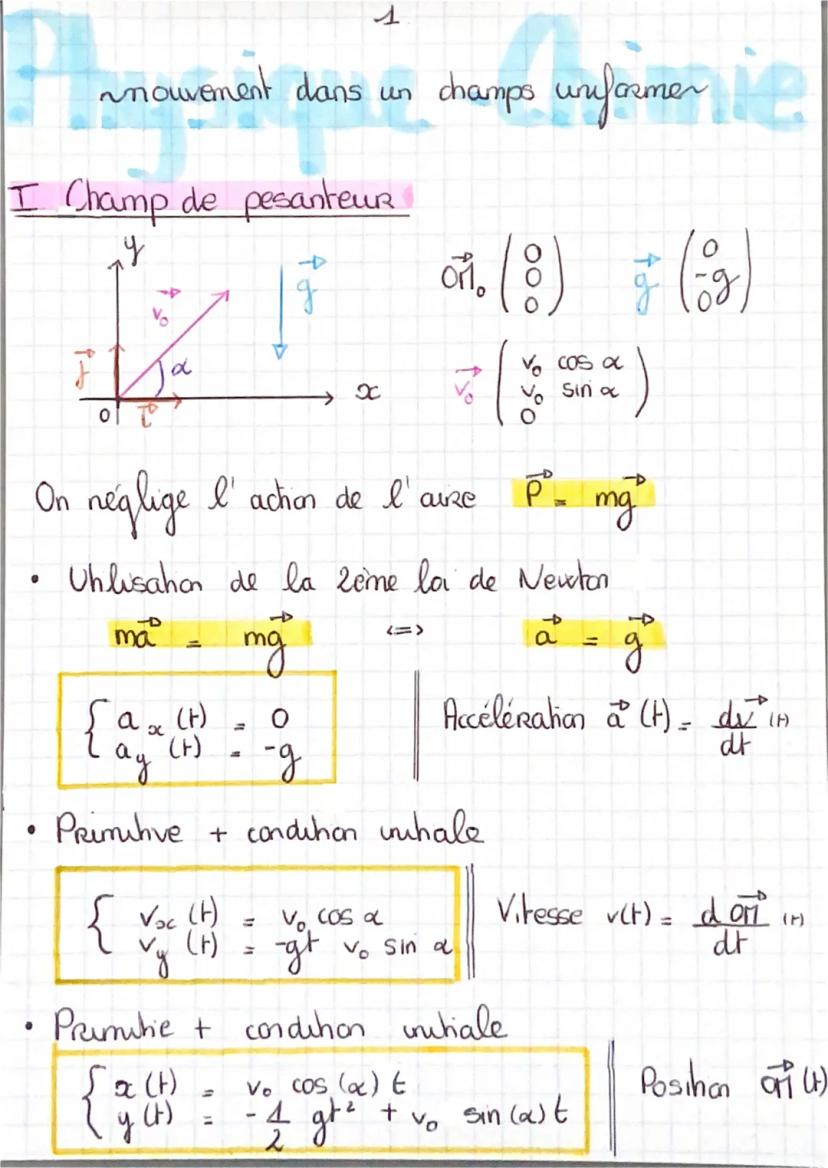 1
Physique Chimie
mouvement dans un champs uniforme
I Champ de pesanteur
y
v₀→
g→
α
j→
x
0
i→
OM₀→ (0 0 0)
g→ (0 -g 0)
v₀→ (v₀ cos α v₀ sin α 0)
On néglige l'action de l'aire P→ = mg→
• Utilisation de la 2ème loi de Newton
ma→ = mg→ <=> a→ = g→
{ aₓ(t) = 0
a_y(t) = -g
Accélération a→(t) = dv→/dt (t)
• Primitive + condition initiale
{ vₓ(t) = v₀ cos α
v_y(t) = -gt v₀ sin α
Vitesse v(t) = d OM→/dt (t)
• Primitie + condition initiale
{ x(t) = v₀ cos(α) t
y(t) = -1/2 gt² + v₀ sin(α) t
Position OM→(t)